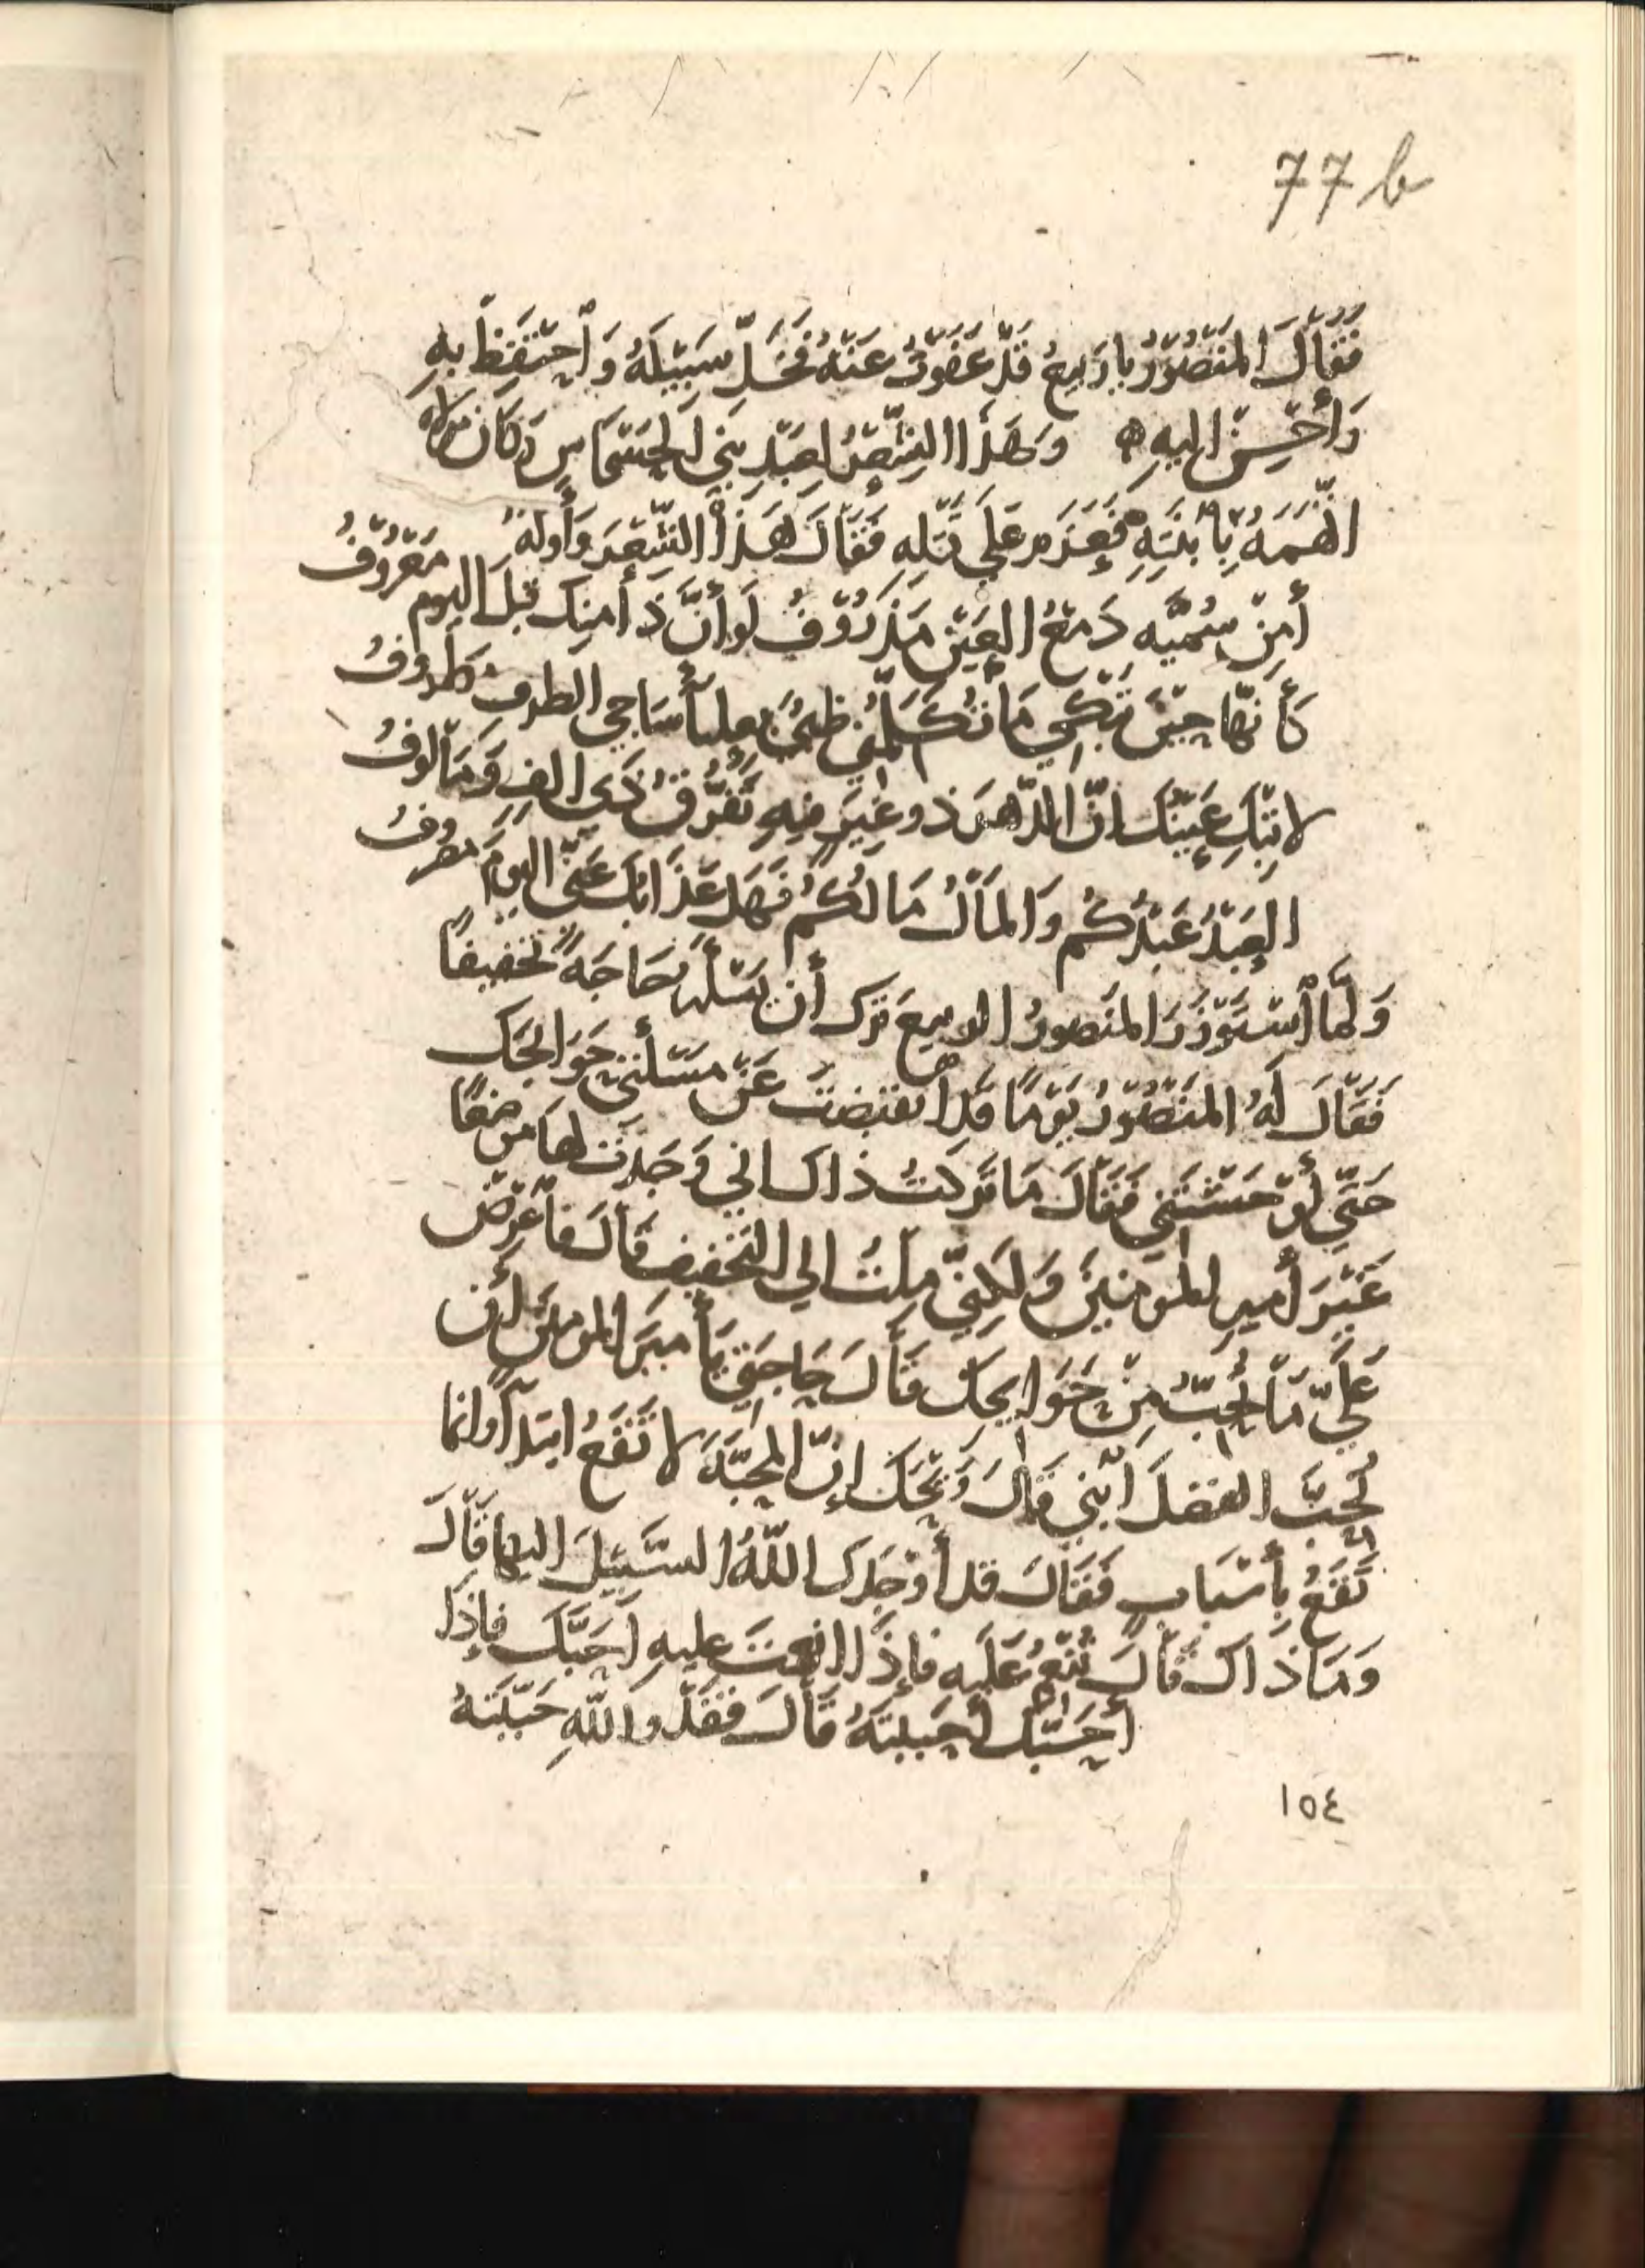 77 b
فَقَالَ المَنْصُوْرُ يا رَبيعُ قَدْ عَفَوْتُ عَنْهُ فَخَلِّ سَبِيْلَهُ وَاْحْتَفِظْ بِهِ
وَأَحْسِنْ اليهِ وَهَذَا الشِّعْرُ لِعَبْدِ بَنِي الحَسْحَاسِ وَكَانَ مولاه
اتَّهَمَهُ بِابْنَتِهِ فَعَزَمَ عَلَي قَتْلِهِ فَقَالَ هَذَا الشِّعْرَ وَأَوله
أَمِنْ سُمَيَّه دَمْعُ العَيْنِ مَذْرُوْفُ لَو أَنَّ ذَا مِنكِ قَبلَ اليوم مَعْرُوْفُ
كَأَنّهَا حِيْنَ تَبْكِي مَا تُكَلِّمُنِي ظبيٌ بعليا سَاجي الطرف مَطروفُ
لا تَبْكِ عَيْنُكَ انَّ الدَّهرَ ذو غِيَرٍ فيهِ تَفَرَّقَ ذُي الفٍ وَمَألوفُ
العَبْدُ عَبْدُكُم وَالمَالُ مَالُكُمُ فَهَل عَذَابُكِ عَنِّي اليومَ مصروفُ
وَلَمَّا اْسْتَوْزَرَ المَنصورُ الربيعَ تَرَكَ أن يَسْأَلَهُ حَاجَةً تَخْفيفًا
فَقَالَ لَهُ المَنْصُوْرُ يَوْمًا قَدِ اْنقبَضتَ عَنْ مَسْأَلَتي حَوَائجَكَ
حَتَّي أَوْحَشْتَنِي فَقَالَ مَا تَركتُ ذاك اني وَجَدت لها موضعًا
غَيْرَ أميرِ المومنينَ وَلَكِنِّي مِلتُ الي التخفيفِ قَالَ فاْعْرِضْ
عَلَيَّ مَا تُحِبُّ مِنْ حَوَايجكَ قَالَ حَاجَتي يَا أميرَ المومنين أن
تُحِبَّ الفضلَ اْبْنِي قَالَ وَيْحَكَ إنَّ المحبَّةَ لا تَقَعُ ابتدآً وانما
تَقَعُ بِأَسْبَابٍ فَقَالَ قد أَوْجَدَكَ اللّهُ السَّبيلَ اليها قَالَ
وَمَا ذَاك قَالَ تُنْعِمُ عَلَيه فإذَا انعمتَ عليهِ أَحَبَّكَ فإذَا
أَحَبَّكَ أَحْبَبْتَهُ قَالَ فَقَدْ واللّهِ حَبَّبْتَهُ
١٥٤